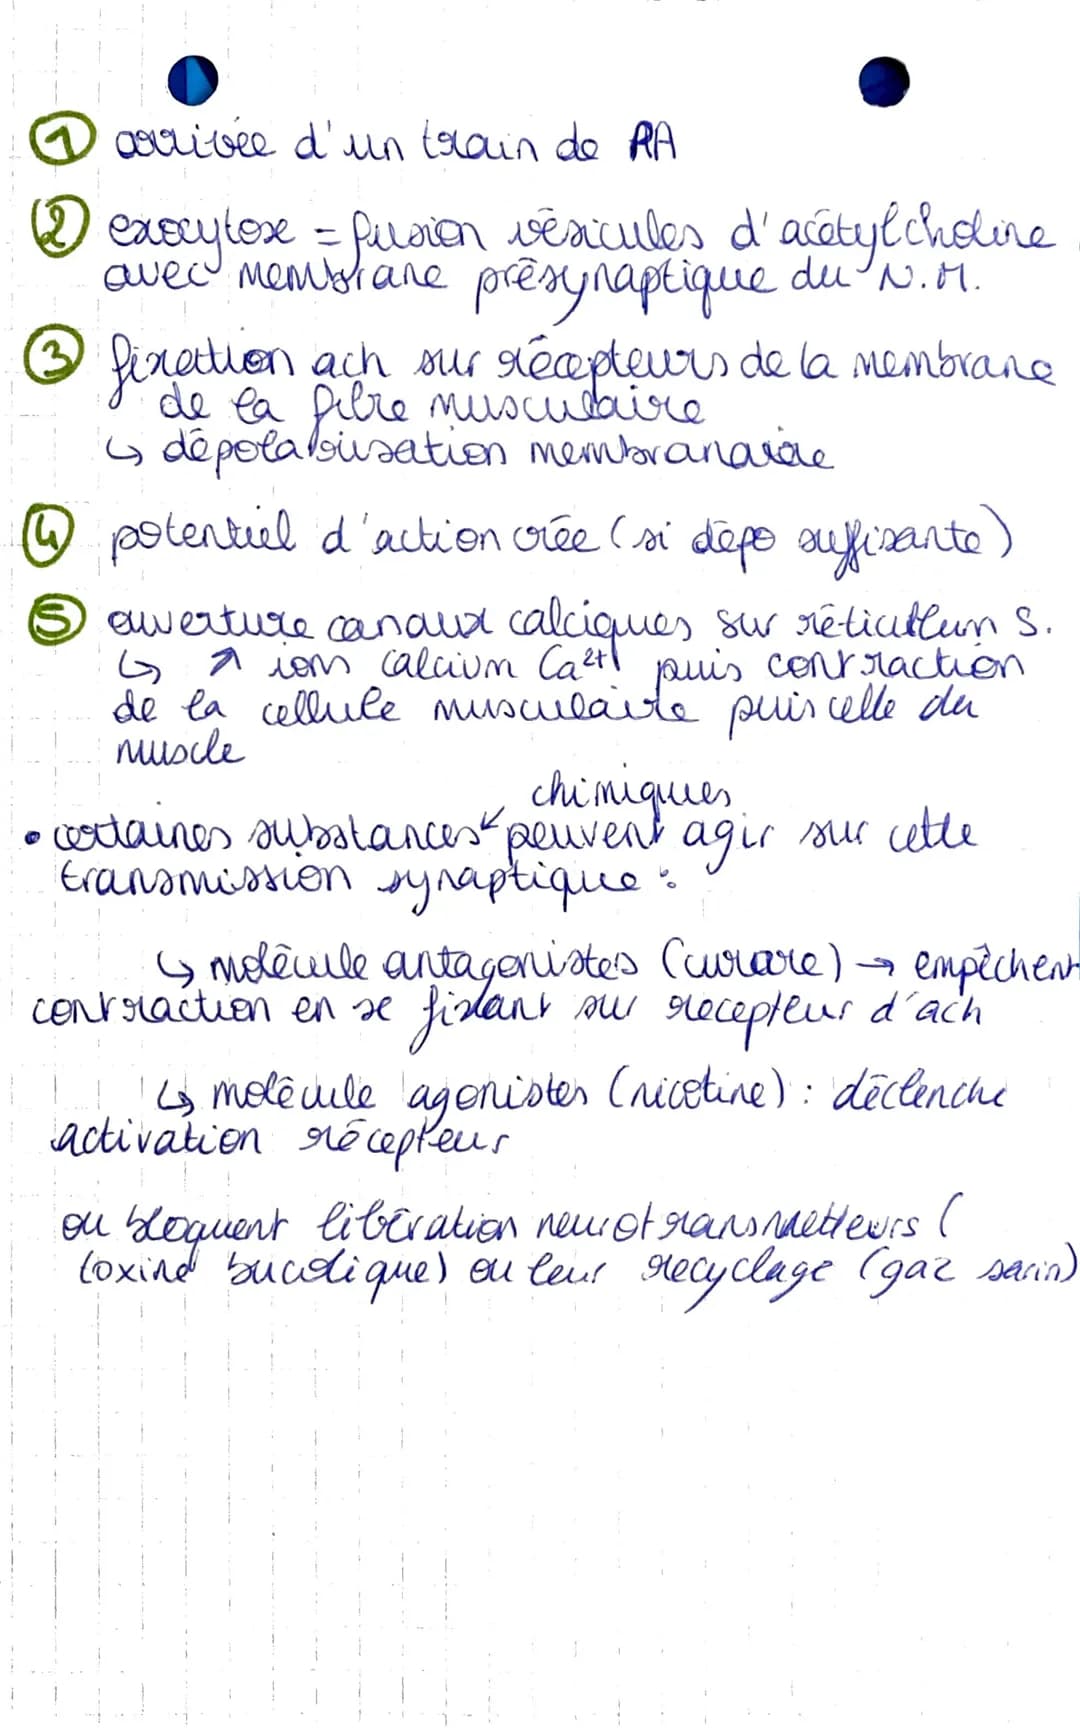 ① arrivée d'un train de PA
② exocytose = fusion vésicules d'acétylcholine
avec membrane présynaptique du N.M.
③ fixation ach sur récepteurs de la membrane
de la fibre musculaire
↳ dépolarisation membranaire
④ potentiel d'action crée (si dépo suffisante)
⑤ ouverture canaux calciques sur réticulum S.
↳ ↗ ions calcium Ca²⁺ puis contraction
de la cellule musculaire puis celle du
muscle
chimiques
• certaines substances ↙ peuvent agir sur cette
transmission synaptique :
↳ molécule antagonistes (curare) → empêchent
contraction en se fixant sur recepteur d'ach
↳ molécule agonistes (nicotine) : déclenche
activation récepteurs
ou bloquent libération neurotransmetteurs (
toxine bucolique) ou leur recyclage (gaz sarin)